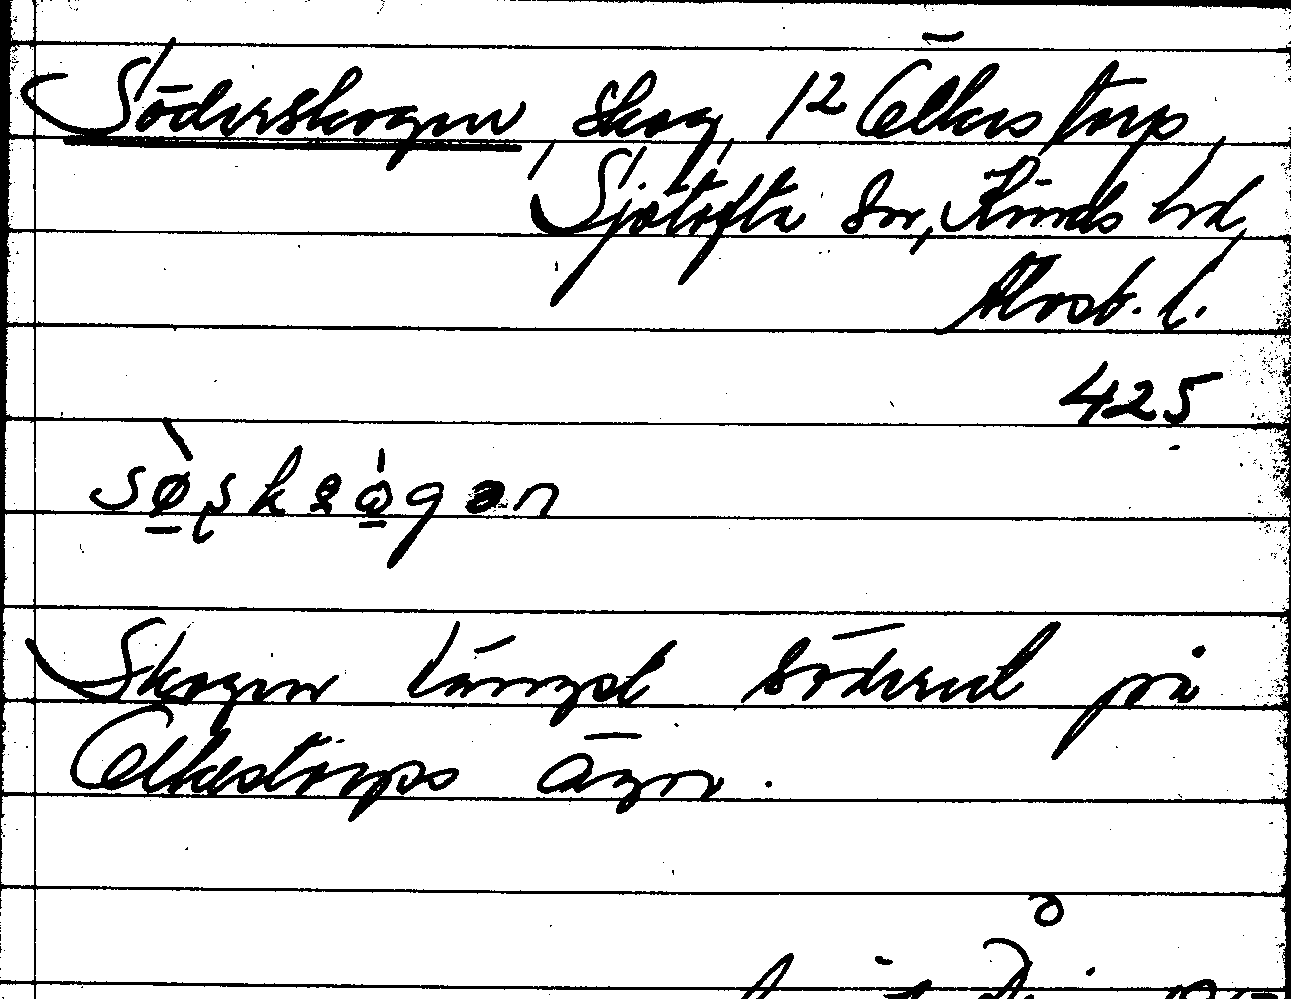 Söderskogen skog, 12 Ölkestorp,
Sjötofta sn, Kinds hd,
Älvsb. l.
425
Skogen längst söderut på
Ölkestorps ägor.